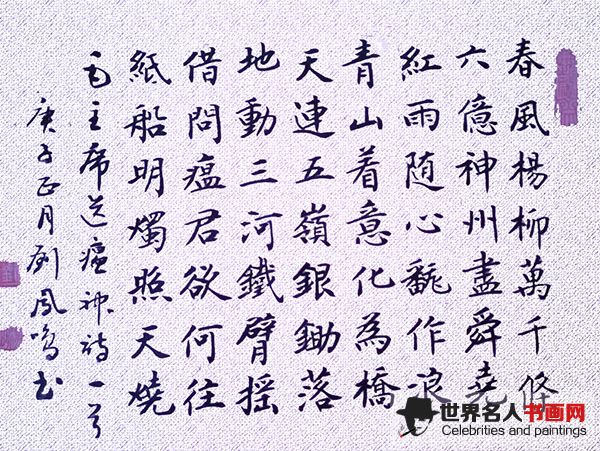 春風楊柳萬千條
六億神州盡舜堯
紅雨随心飜作浪
青山着意化為橋
天連五嶺銀鋤落
地動三河鐵臂摇
借問瘟君欲何往
紙船明燭照天燒
毛主席送瘟神詩一首
庚子正月刘鳳鳴书
世界名人书画网
Celebrities and paintings